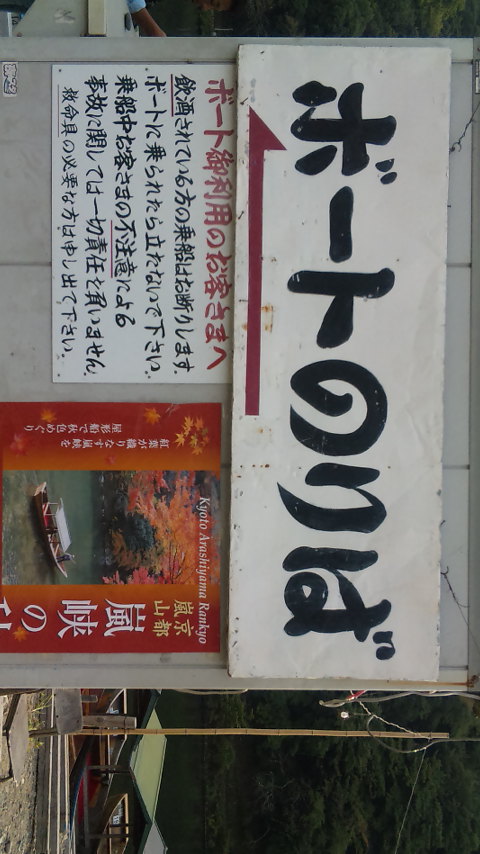 ボートのりば
ボート御利用のお客さまへ
飲酒されている方の乗船はお断りします。
ボートに乗られたら立たないで下さい。
乗船中お客さまの不注意による
事故に関しては一切責任を負いません。
救命具の必要な方は申し出て下さい。
Kyoto Arashiyama Rankyo
京都
嵐山
嵐峡の
紅葉が織りなす嵐峡を
屋形船で秋色めぐり